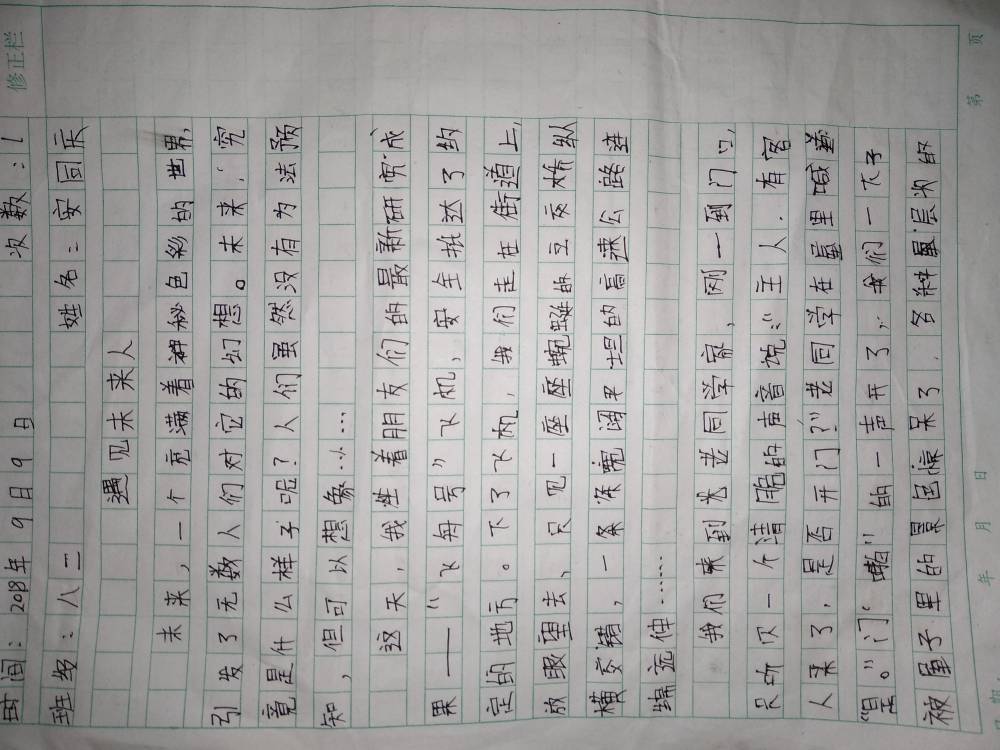 修正栏
时间：2018年9月9日 次数：1
班级：八二 姓名：安同乐
遇见未来人
未来，一个充满着神秘色彩的世界，
引发了无数人们对它的幻想。未来，究
竟是什么样子呢？人们虽然没有为法预
知，但可以想象……
这天，我坐着朋友们的最新研究成
果——“飞舟号”飞机，安全抵达了约
定的地方。下了飞机，我们走在街道上，
放眼望去，只见一座座蜿蜒的立交桥纵
横交错，一条条宽阔平坦的高速公路连
绵延伸……
我们来到老同学家，刚一到门口，
只听仅一个清脆的声音说：“主人，有客
人来了，是否开门？”老同学在屋里喊道
“是。”门“嘞”的一声开了，我们一下子
被屋子里的景色惊呆了，各种层次的
第 页
年 月 日